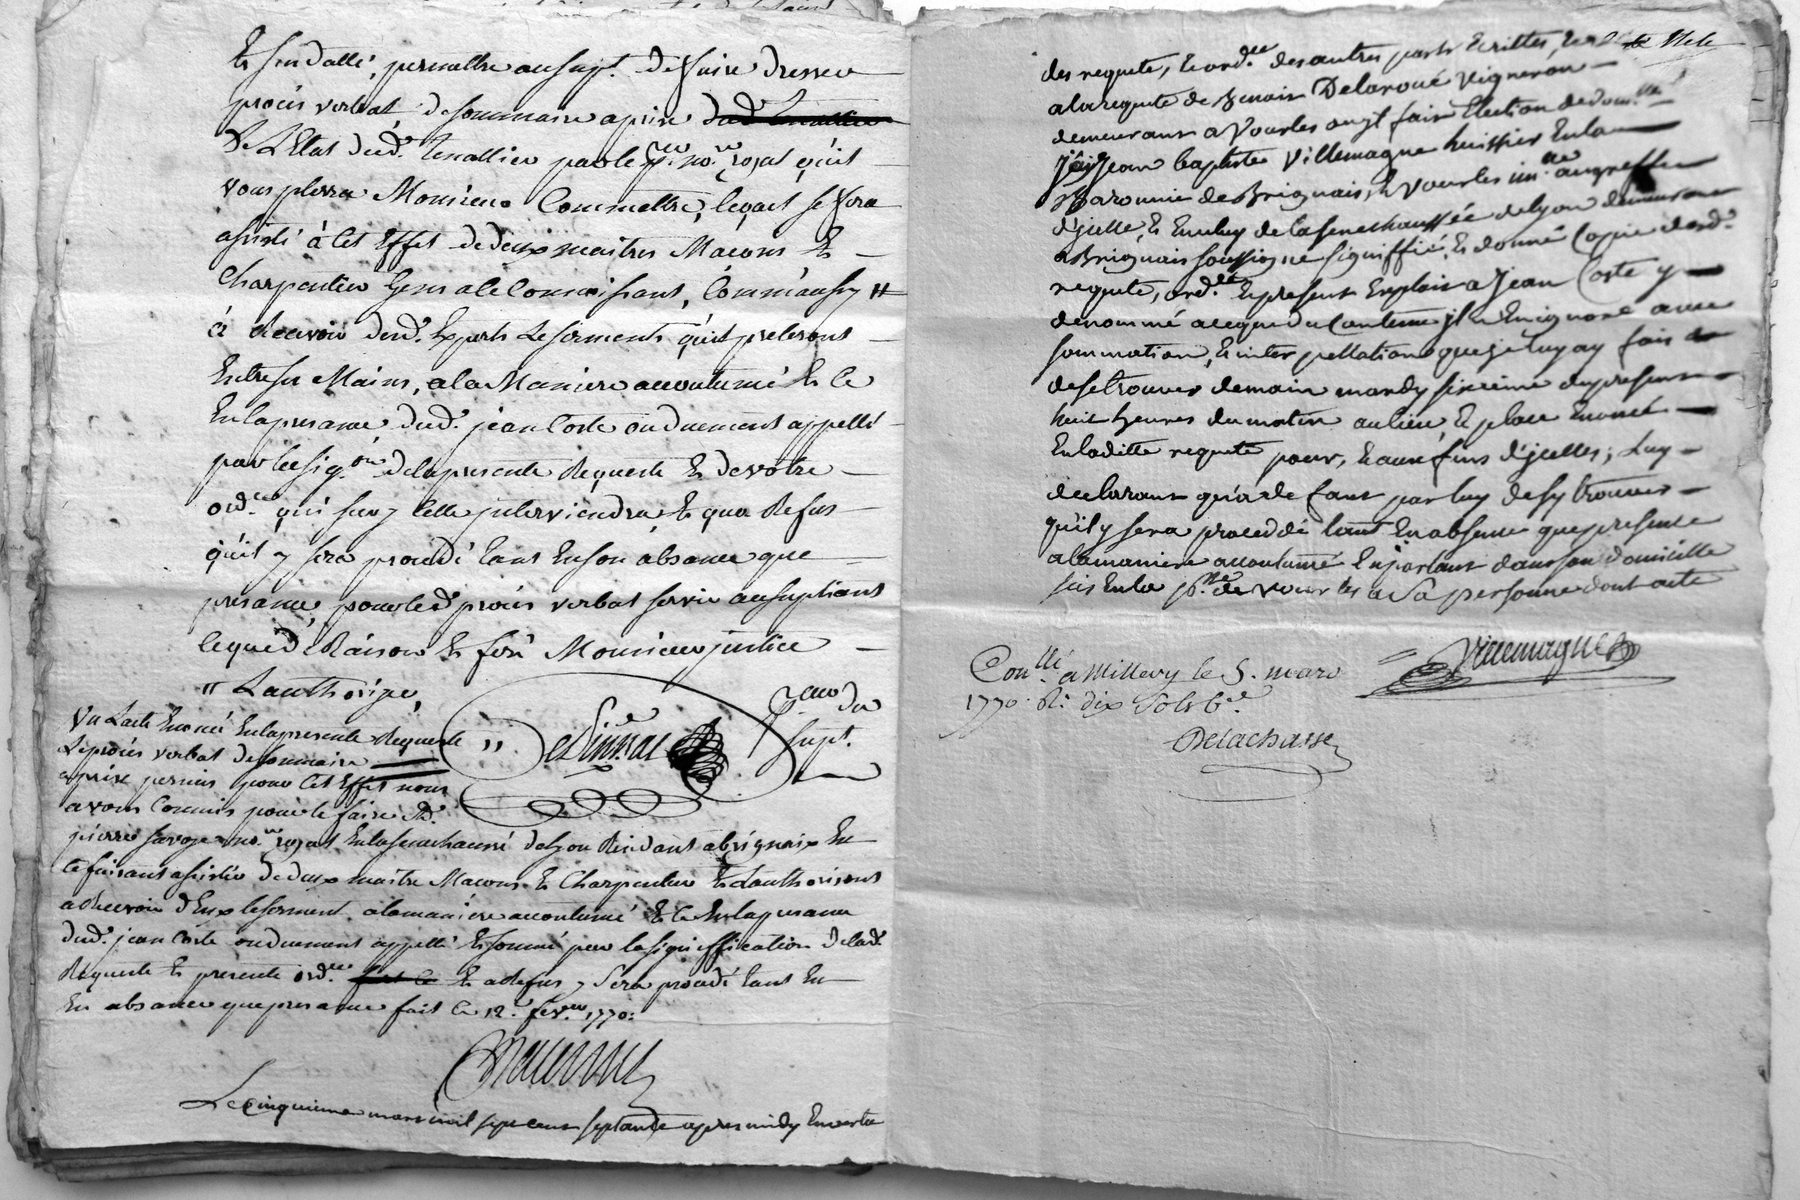 permettre au supt. de faire dresser
procès verbat de sommaire aprise
de L'Etat dud. par le no.re royal qu'il
vous plerra Monsieur Commettre, leqael se fera
assisté à cet Effet de deux maitres Macons Et
Charpentier Gens a le Connoissant,
à Recevoir desd. Experts Le serments qu'il preterons
Entre ses Mains, a la Maniere accoutumé Et Ce
En la presance dud. jean Coste ou duement appellé
par la sig.on de la presente Requeste Et de votre
ord.ce qui sur Celle jnterviendra, Et qua Refus
qu'il y sera procedé tant En son absance que
presance, pour led. procès verbat servir au supliant
Raison Et feré Monsieur justice
" L'authorizer,
Vu L'acte Enoncé En la presente Requeste
Le procès verbat de sommaire
aprise permis pour Cet Effet nous
avons Commis pour le faire M.
pierre savoye no.re royal En la senechaussé de Lyon Residant a brignaix En
Ce faisant assister de deux maitre Macons Et Charpentier Et L'authorisons
a Recevoir d'Eux le serment a la maniere accoutumé Et Ce En la presance
dud. jean Coste ou duement appellé Et sommé par la signiffication de lad.
Requeste Et presente ord.ce Et a Refus y sera procedé tant En
En absance que presance fait Ce 12.e fev.er 1770.
Le cinquieme mars mil sept cent septante apres midy En vertu
des requete, Et ord.ce des autres parts Ecrittes,
a la requete de Benoit Delaroüé Vigneron
demeurant a Vourles ou jl fait Election de dom.lle
j'ay Jean baptiste Villemagne huissier En la
Baronnie de Brignais, Et Vourles im.lé au greffe
d'jcelle, Et En celuy de la senechaussée de Lyon demeurant
a Brignais soussigné signiffié, Et donné Copie desd.
requete, ord.ce Et present Exploit a Jean Coste y
denommé a ce que du Contenu jl n'En ignore avec
sommation, Et interpellation que je luy ay fait
de se trouver demain mardy sixieme du present
huit heures du matin au lieu, Et place Enoncé
En laditte requete pour, Et aux fins d'jcelles, Luy
declarant qu'a de faut par luy de s'y trouver
qu'il y sera proceddé tant En absence que presence
a la maniere accoutumé En parlant dans son domicille
sis En la p.sse de Vourles a Sa personne dont acte
Villemagne
Con.llé a Millery le 5. mars
1770. R. dix sols
Delachasse